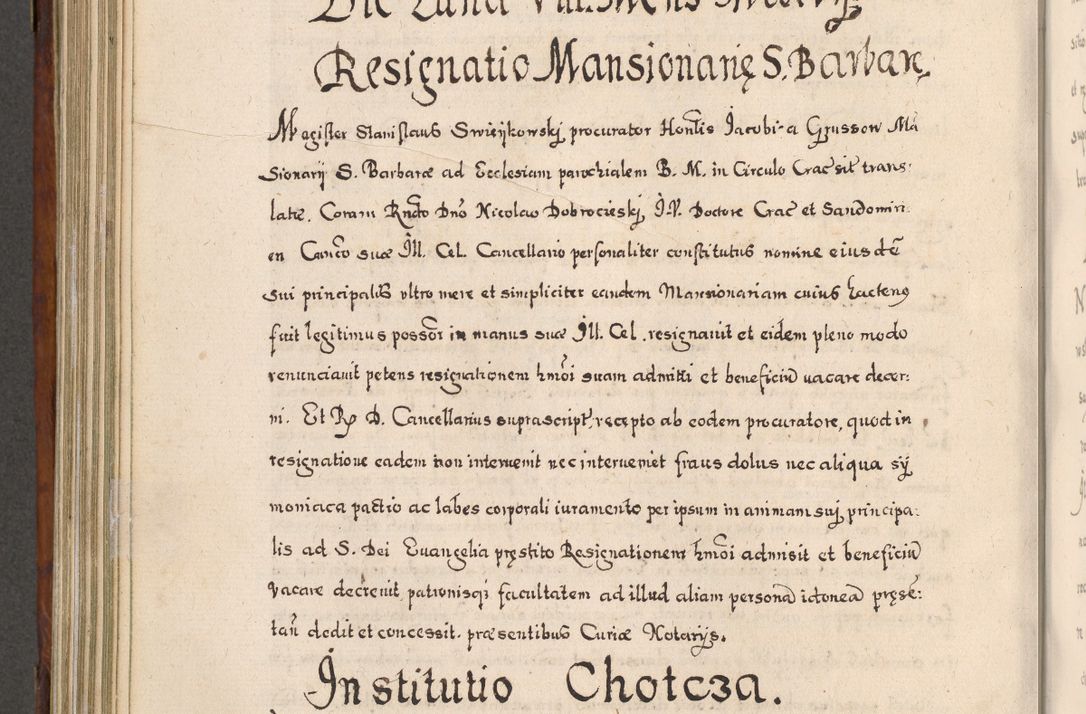 Die Lunæ
Resignatio Mansionarię S. Barbarę
Magister Stanislaus Swieykowskj procurator Honlis Jacobi a Grussow Mā
sionarij S. Barbaræ ad Ecclesiam parochialem B. M. in Circulo Crac̄ sit trans:
latę. Coram Rn̄do Dn̄o Nicolao Dobrocieskj, I. V. Doctore Crac̄ et Sandomiri:
en Can̄co suæ Ill. Cel. Cancellario personaliter constitutus nomine eiusdē
sui principalis vltro mere et simpliciter eandem Mansionariam cuius hactenꝰ
fuit legitimus possōr in manus suæ Ill. Cel. resignauit et eidem pleno modo
renunciauit petens resignationem hmōi suam admitti et beneficiū vacare decer:
ni. Et Rꝑ D. Cancellarius suprascript', recepto ab eodem procuratore, quod in
resignatione eadem non interuenit nec interueniet fraus dolus nec aliqua sij
moniaca pactio ac labes corporali iuramento per ipsum in animam suj principa:
lis ad S. Dei Euangelia pręstito Resignationem hmōi admisit et beneficiū
vacare decreuit, patronisq; facultatem ad illud aliam personā idoneā pręsē:
tan̄ dedit et concessit. præsentibus Curiæ Notarijs.
Institutio Chotcza.